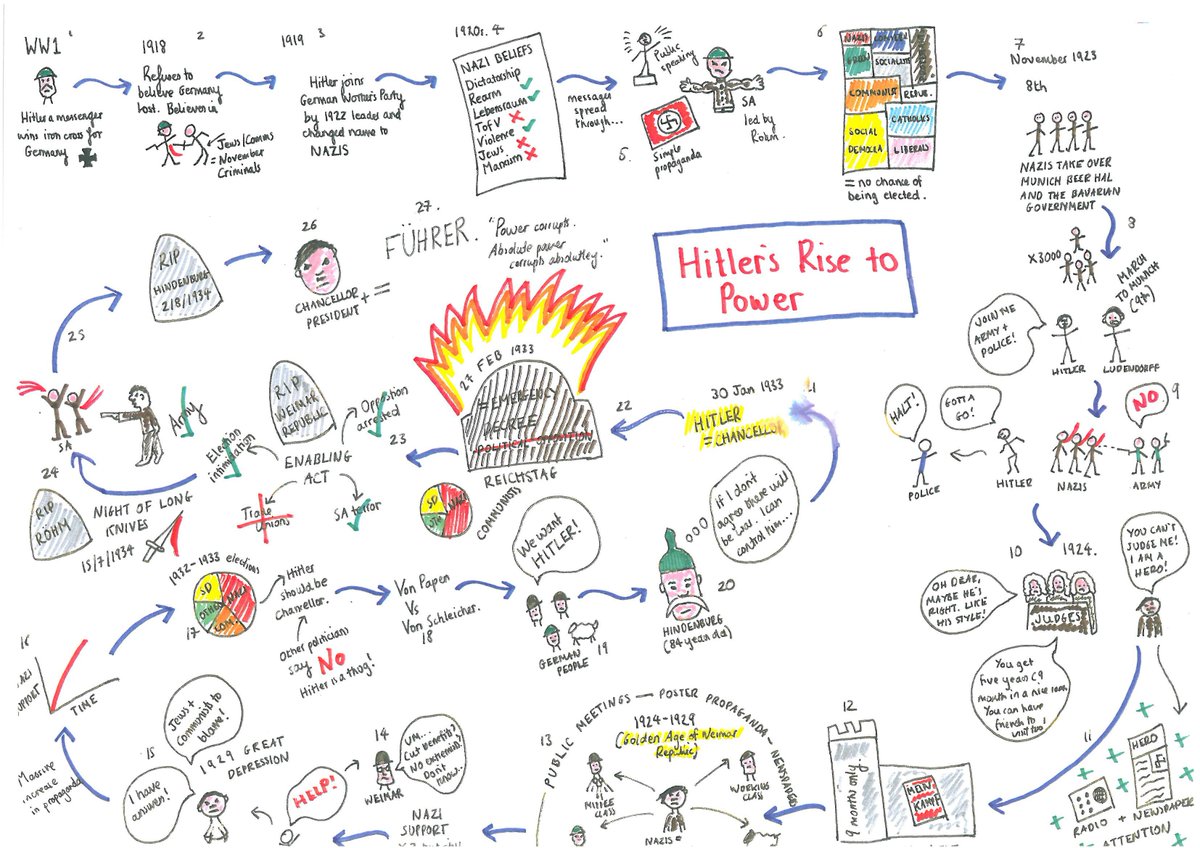 WW1
1
Hitler a messenger
wins iron cross for
Germany
1918
2
Refuses to
believe Germany
lost. Believe in
Jews/Comms
= November
Criminals
1919
3
Hitler joins
German Worker's Party
by 1922 leader and
changed name to
NAZIS
1920s.
4
NAZI BELIEFS
Dictatorship
Rearm
Lebensraum
TofV
Violence
Jews
Marxism
messages
spread
through...
5.
Public
speaking
Simple
propaganda
SA
led by
Rohm.
6
NAZIS
SOCIALISTS
COMMUNIST
CATHOLICS
SOCIAL
DEMOCRA
LIBERALS
= no chance of
being elected.
7
November 1923
8th
NAZIS TAKE OVER
MUNICH BEER HAL
AND THE BAVARIAN
GOVERNMENT
8
X3000
MARCH
TO MUNICH
(9th)
JOIN ME
ARMY +
POLICE!
HITLER
LUDENDORFF
9
NO.
HALT!
GOTTA
GO!
POLICE
HITLER
NAZIS
ARMY
10
1924.
OH DEAR,
MAYBE HE'S
RIGHT. LIKE
HIS STYLE!
JUDGES
YOU CAN'T
JUDGE ME!
I AM A
HERO!
You get
five years (9
month in a nice room
You can have
friends to
visit too
11
HERO
RADIO + NEWSPAPER
ATTENTION
12
9 months only
MEIN
KAMPF
13
PUBLIC MEETINGS — POSTER PROPAGANDA - NEWSPAPERS
1924-1929
(Golden Age of Weimar
Republic)
MIDDLE
CLASS
WORKING
CLASS
NAZIS
NAZI
SUPPORT
14
WEIMAR
UM...
Cut benefits?
No extremist.
Don't
know...
HELP!
15
1929 GREAT
DEPRESSION
Jews +
communists to
blame!
I have
answers!
Massive
increase
in propaganda
16
TIME
1932-1933 elections
17
SD
OTHER
NAZI
COM.
Hitler
should be
chancellor.
Other politicians
say NO
Hitler is a thug!
Von Papen
Vs
Von Schleicher.
18
We want
HITLER!
GERMAN
PEOPLE
19
20
HINDENBURG
(84 year old)
If I don't
agree there will
be war. I can
control him...
30 Jan 1933
HITLER
= CHANCELLOR
22
27 FEB 1933
= EMERGENCY
DECREE
POLITICAL OPPOSITION
REICHSTAG
SD
NAZIS
COMMUNISTS
23
RIP
WEIMAR
REPUBLIC
ENABLING
ACT
Opposition
arrested
Election
intimidation
Trade
Unions
SA terror
24
RIP
RÖHM
NIGHT OF LONG
KNIVES
15/7/1934
SA
Army
25
RIP
HINDENBURG
2/8/1934
26
CHANCELLOR
PRESIDENT + =
27.
FÜHRER.
"Power corrupts.
Absolute power
corrupts absolutley."
Hitler's Rise to
Power